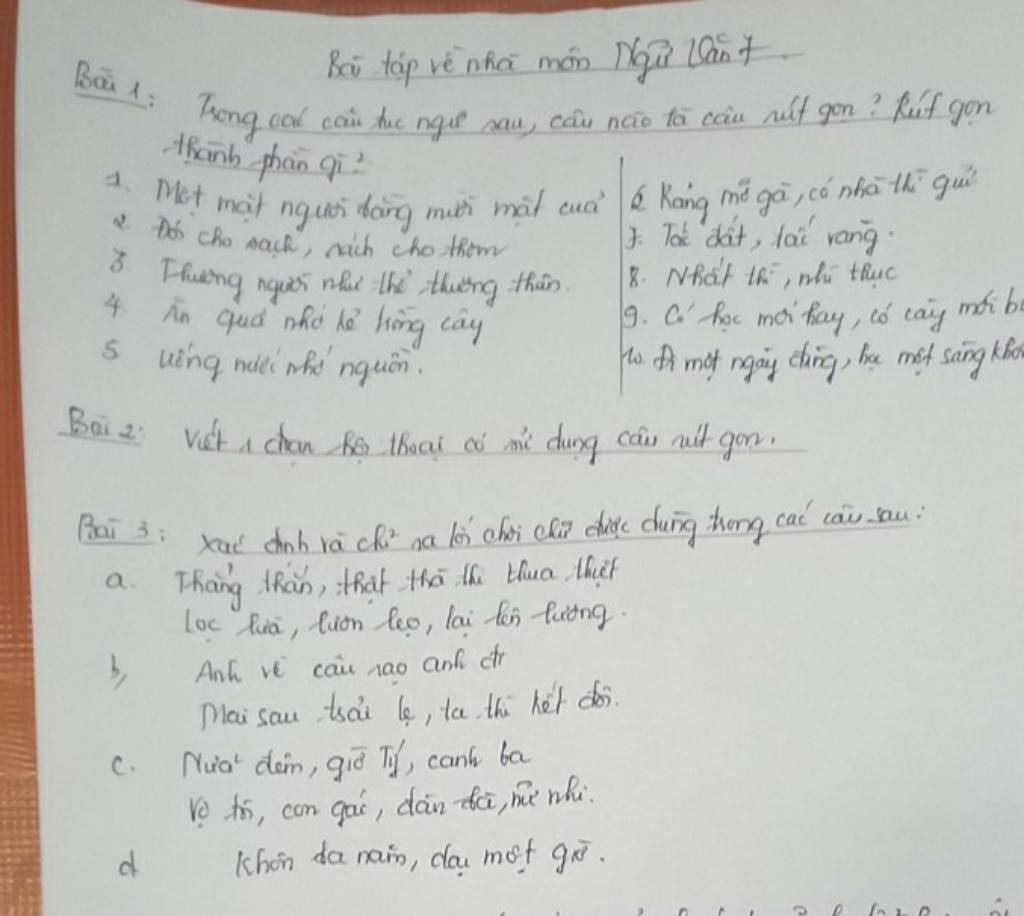 Bài tập về nhà môn Ngữ Văn 7
Bài 1: Trong các câu tục ngữ sau, câu nào là câu rút gọn? Rút gọn
thành phần gì?
1. Một mặt người bằng mười mặt của
2. Đói cho sạch, rách cho thơm
3 Thương người như thể thương thân.
4 Ăn quả nhớ kẻ trồng cây
5 Uống nước nhớ nguồn.
6. Ráng mỡ gà, có nhà thì giữ
7. Tấc đất, tấc vàng.
8. Nhất thì, nhì thục
9. Có học mới hay, có cày mới
10. Đi một ngày đàng, học một sàng
Bài 2: Viết 1 đoạn hội thoại có sử dụng câu rút gọn.
Bài 3: Xác định và chỉ ra lối chơi chữ được dùng trong các câu sau:
a. Thẳng thắn, thật thà thì thua thiệt
Lọc lừa, lươn lẹo, lại lên lương.
b, Anh về câu rạo anh
Mai sau trải lẹ, ta thì kết đôi.
c. Nửa đêm, giờ Tý, canh ba
Vợ tôi, con gái, đàn bà, nữ nhi.
d Khôn ba năm, dại một giờ.